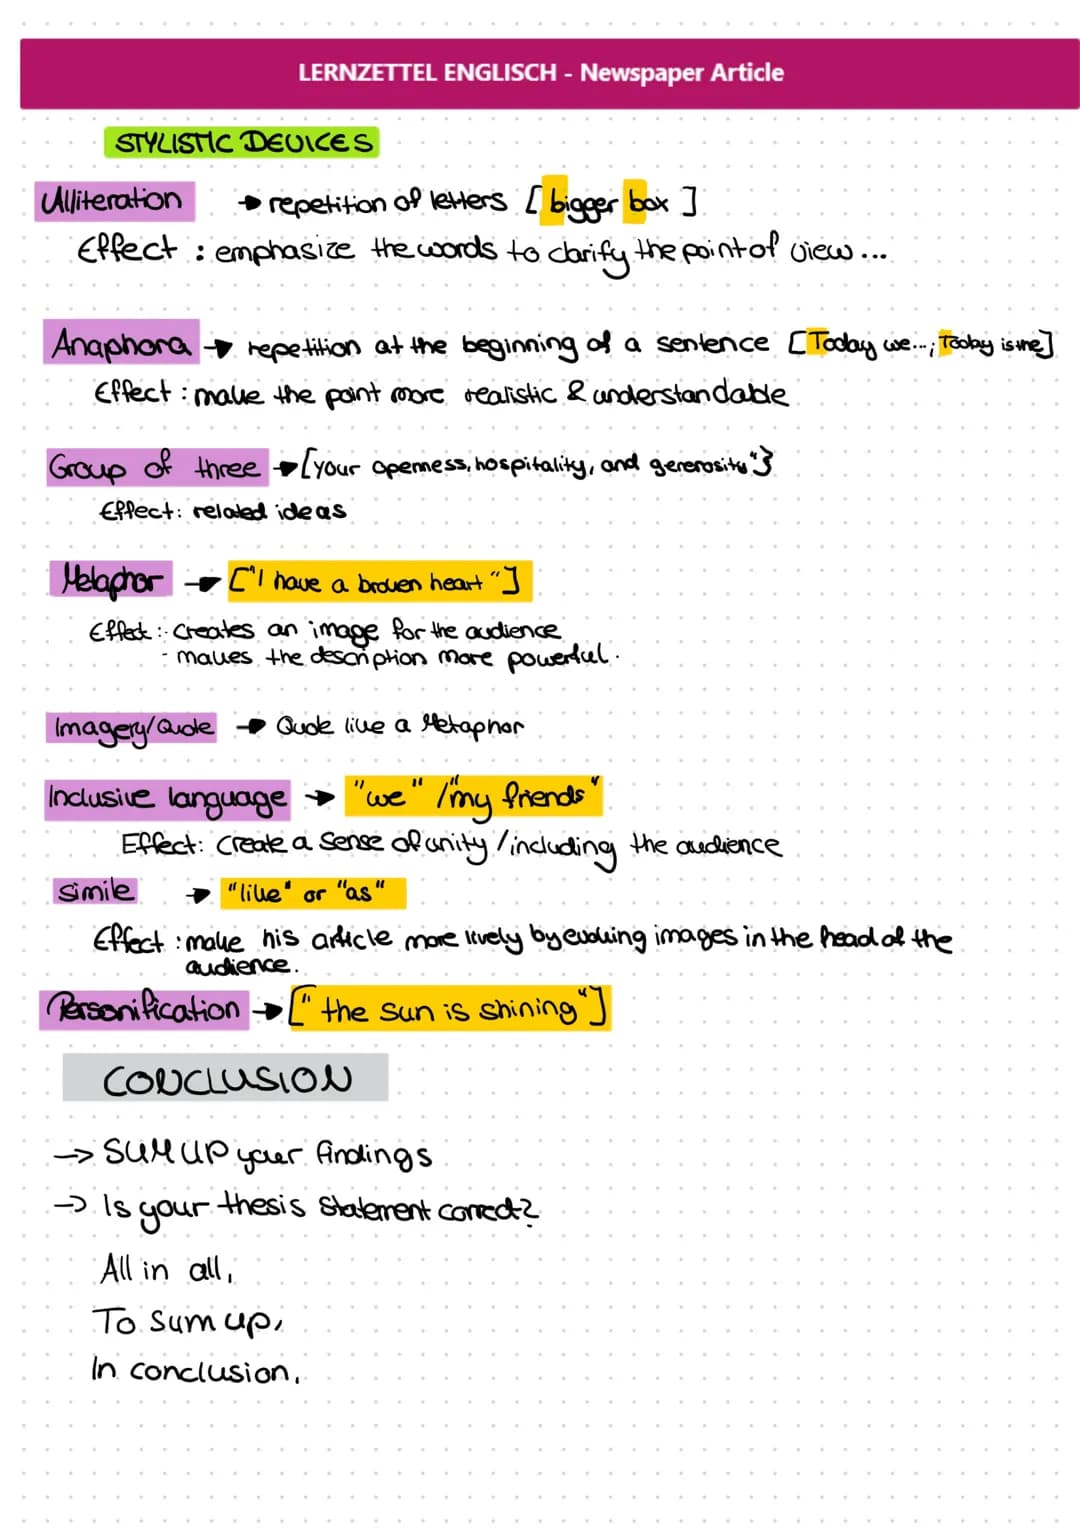 LERNZETTEL ENGLISCH - Newspaper Article
STYLISTIC DEVICES
Alliteration → repetition of letters [bigger box]
Effect : emphasize the words to clarify the point of view...
Anaphora → repetition at the beginning of a sentence [Today we...; Today is the]
Effect : make the point more realistic & understandable
Group of three → [your openness, hospitality, and generosity"}
Effect: related ideas
Metaphor → ["I have a broken heart"]
Effect : - creates an image for the audience
- makes the description more powerful.
Imagery/Quote → Quote like a Metaphor
Inclusive language → "we" / "my friends"
Effect: Create a sense of unity / including the audience
simile → "like" or "as"
Effect : make his article more lively by evoking images in the head of the
audience.
Personification → ["the sun is shining"]
CONCLUSION
→ SUM UP your findings
→ Is your thesis statement correct?
All in all,
To sum up,
In conclusion,